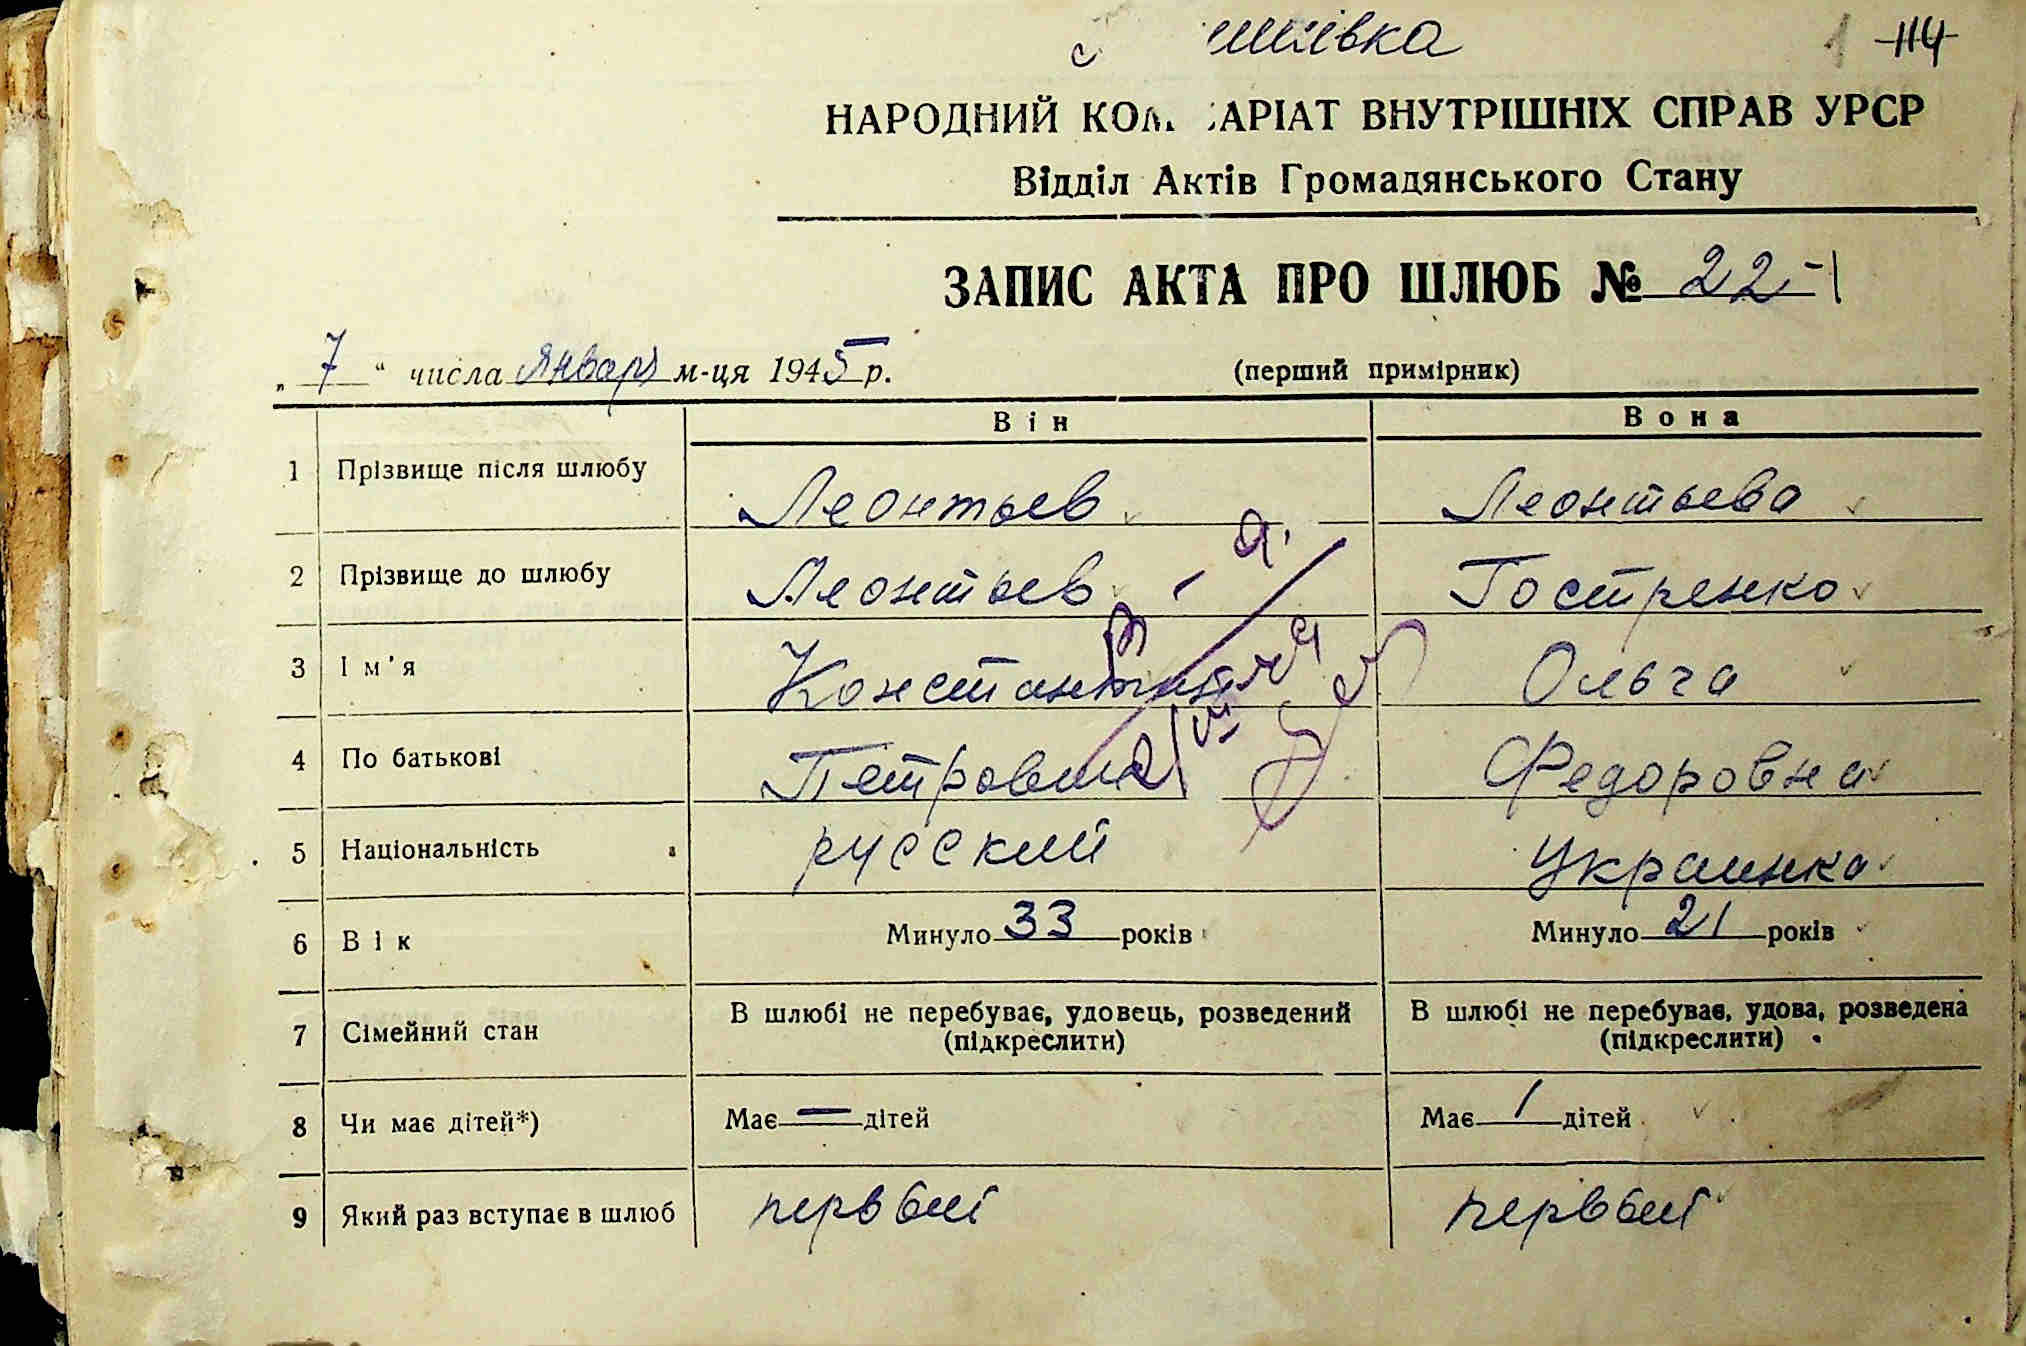 с шківка 1 114
НАРОДНИЙ КОМ САРІАТ ВНУТРІШНІХ СПРАВ УРСР
Відділ Актів Громадянського Стану
ЗАПИС АКТА ПРО ШЛЮБ № 22-1
„ 7 “ числа Января м-ця 1945 р. (перший примірник)
Він Вона
1 Прізвище після шлюбу Леонтьев Леонтьева
2 Прізвище до шлюбу Леонтьев Гостренко
3 Ім'я Константин Ольга
4 По батькові Петрович Федоровна
5 Національність русский украинка
6 Вік Минуло 33 років Минуло 21 років
7 Сімейний стан В шлюбі не перебуває, удовець, розведений (підкреслити) В шлюбі не перебуває, удова, розведена (підкреслити)
8 Чи має дітей*) Має — дітей Має 1 дітей
9 Який раз вступає в шлюб первый первый